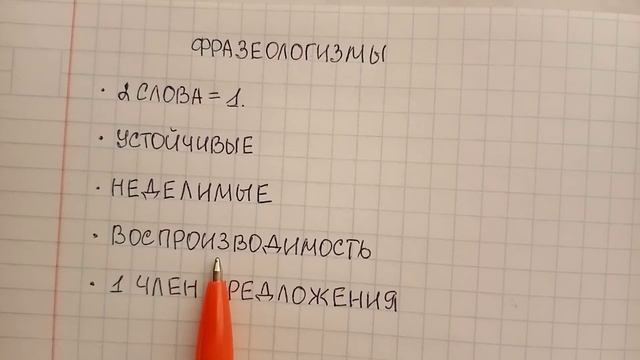 ФРАЗЕОЛОГИЗМЫ
· 2 СЛОВА = 1.
· УСТОЙЧИВЫЕ
· НЕДЕЛИМЫЕ
· ВОСПРОИЗВОДИМОСТЬ
· 1 ЧЛЕН РЕДЛОЖЕНИЯ